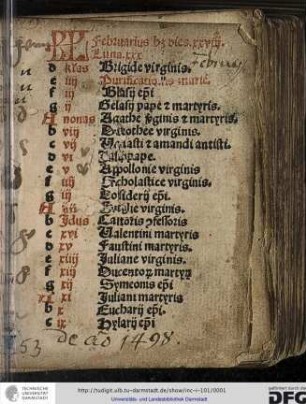 KL Februarius hz dies.xxviij.
Luna.xxx
februarij
d klas Brigide virginis.
e iiij Purificatio marie.
f iij Blasij epi
g ij Gelasij pape z martyris.
A nonas Agathe virginis z martyris.
b viij Dorothee virginis.
c vij Vedasti z amandi antisti.
d vi pape.
e v Appollonie virginis
f iiij Scholastice virginis.
g iij Desiderij epi.
A ij virginis.
b Idus Castoris pfessoris
c xvi Valentini martyris
d xv Faustini martyris.
e xiiij Juliane virginis.
f xiij Ducentor martyrum
g xij Symeonis epi
A xi Juliani martyris
b x Eucharij epi.
c ix Hylarij epi
53 de ao 1498.
TECHNISCHE UNIVERSITÄT DARMSTADT
http://tudigit.ulb.tu-darmstadt.de/show/inc-i-101/0001
Universitäts- und Landesbibliothek Darmstadt
gefördert durch die
DFG